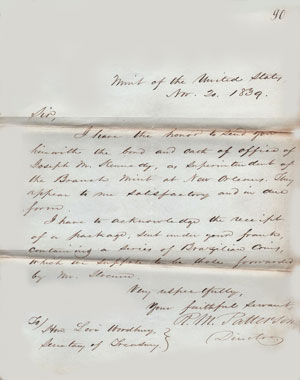 90
Mint of the United States
Nov. 20. 1839.
Sir,
I have the honor to send you
herewith the bond and oath of office of
Joseph M. Kennedy, as Superintendent of
the Branch Mint at New Orleans. They
appear to me satisfactory and in due
form.
I have to acknowledge the receipt
of a package, sent under your frank
containing a series of Brazilian Coins,
which I suppose to be those forwarded
by Mr.
Very respectfully,
Your faithful servant,
R. M. Patterson
Director
To
Hon. Levi Woodbury,
Secretary of Treasury